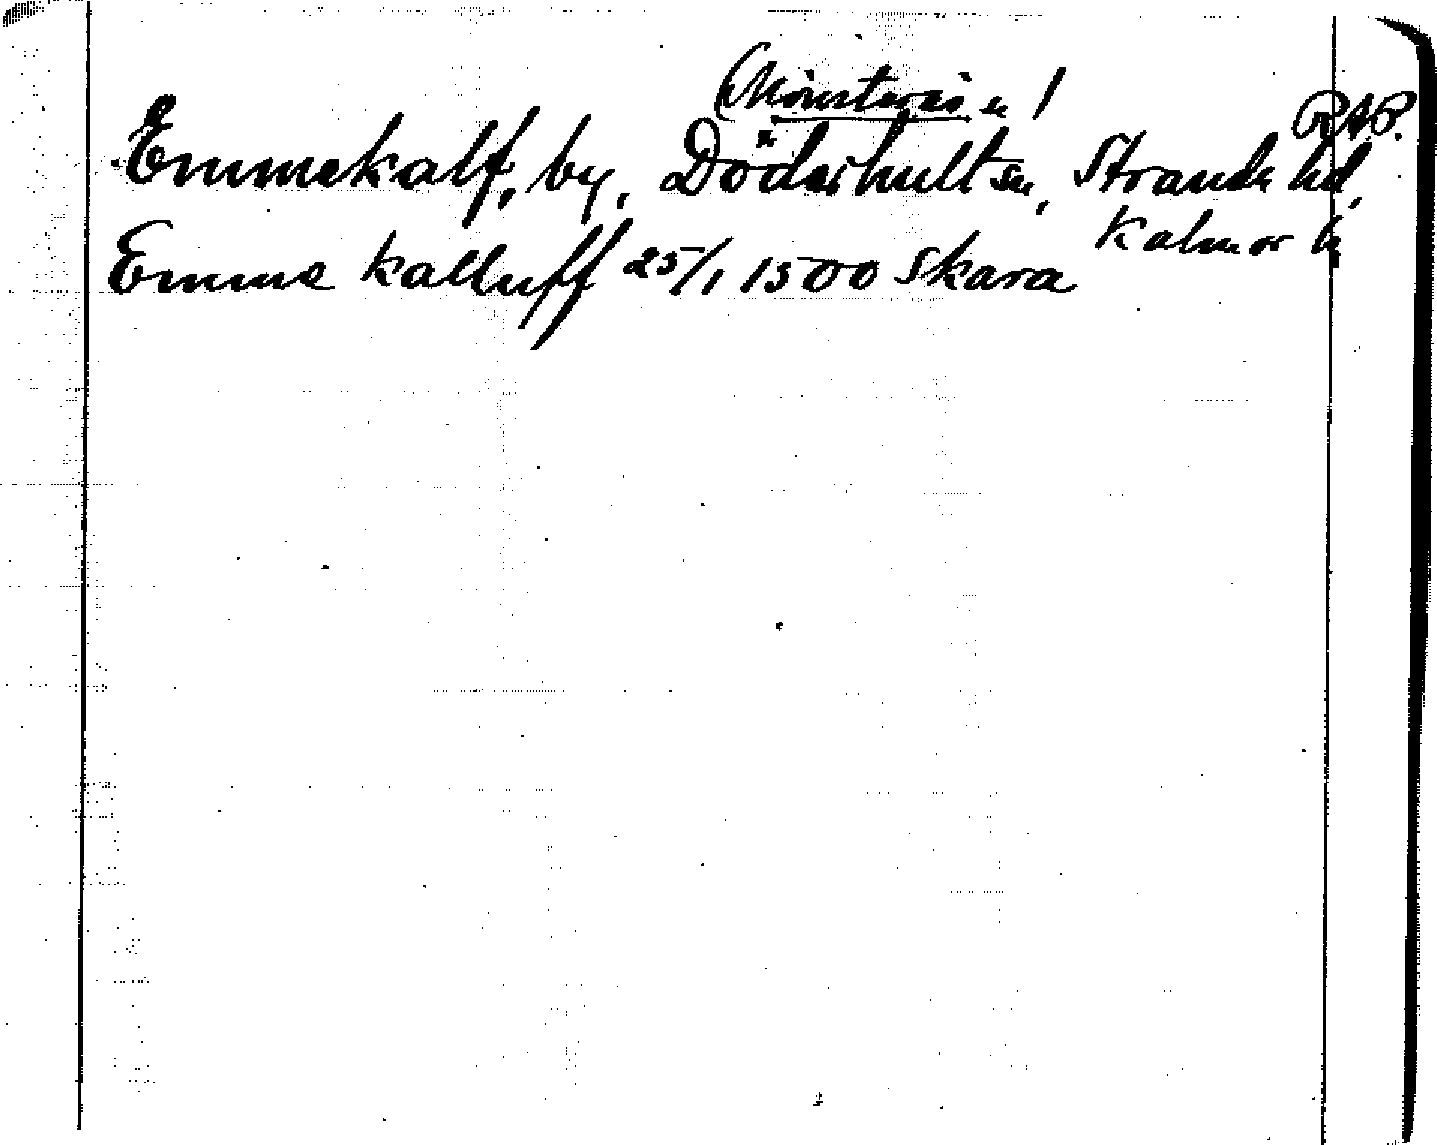 (Mönsterås sn!
RAP.
Emmekalf, by, Döderhult sn, Stranda hd,
Kalmar l.
Emme kalluff 25/1 1500 Skara